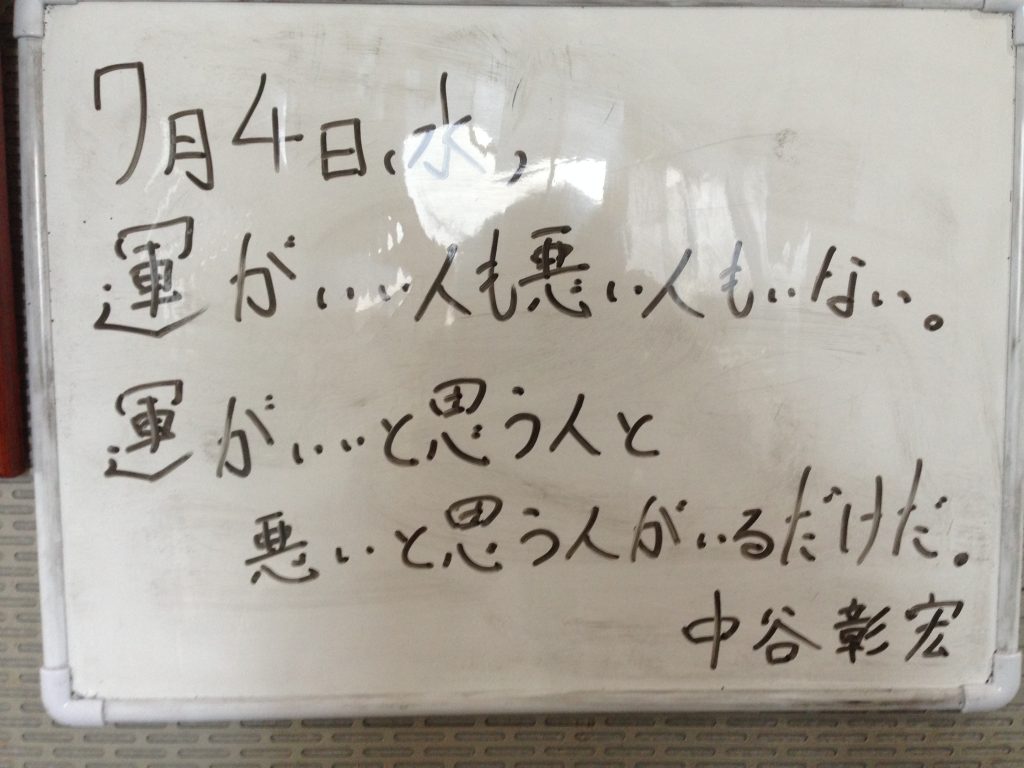 7月4日(水)
運がいい人も悪い人もいない。
運がいいと思う人と
悪いと思う人がいるだけだ。
中谷彰宏